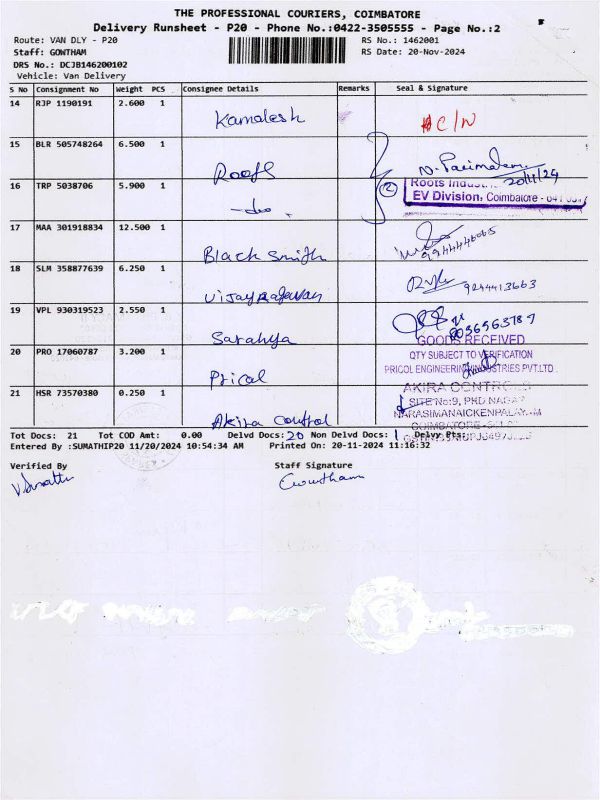 THE PROFESSIONAL COURIERS, COIMBATORE
Delivery Runsheet - P20 - Phone No.:0422-3505555 - Page No.:2
Route: VAN DLY - P20 RS No.: 1462001
Staff: GOWTHAM RS Date: 20-Nov-2024
DRS No.: DCJB146200102
Vehicle: Van Delivery
S No Consignment No Weight PCS Consignee Details Remarks Seal & Signature
14 RJP 1190191 2.600 1
Kamalesh C/N
15 BLR 505748264 6.500 1
Roots
16 TRP 5038706 5.900 1
-do. 2 20/11/24
EV Division, Coimbatore -
17 MAA 301918834 12.500 1
Black Smith
18 SLM 358877639 6.250 1
Vijayragavan 9244413663
19 VPL 930319523 2.550 1
Saranya
GOODS RECEIVED
20 PRO 17060787 3.200 1 QTY SUBJECT TO VERIFICATION
Prical PRICOL ENGINEERING INDUSTRIES PVT.LTD.
21 HSR 73570380 0.250 1 AKIRA CONTROLS
SITE No:9, PKD NAGAR
Akira Control NARASIMANAICKENPALAYAM
Tot Docs: 21 Tot COD Amt: 0.00 Delvd Docs: 20 Non Delvd Docs: 1 Delvy Pts:
Entered By :SUMATHIP20 11/20/2024 10:54:34 AM Printed On: 20-11-2024 11:16:32
Verified By Staff Signature
Gowtham